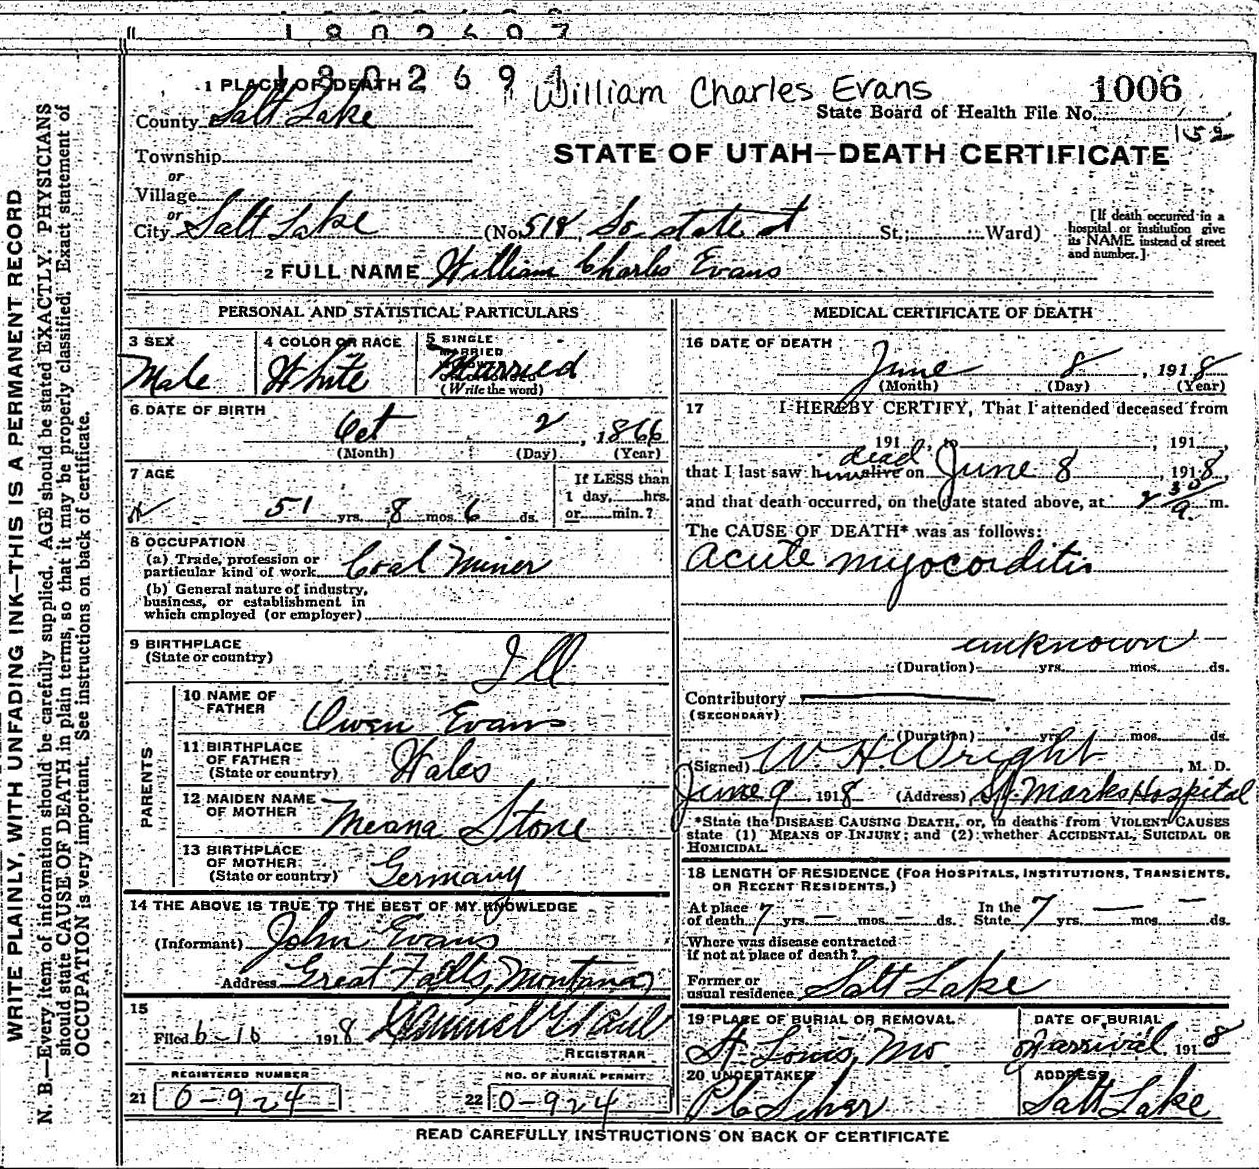 1802697
1802697
William Charles Evans
1006
1 PLACE OF DEATH
State Board of Health File No.
152
County Salt Lake
STATE OF UTAH—DEATH CERTIFICATE
Township
or
Village
or
City Salt Lake (No. 518 So state st St.; Ward)
[If death occurred in a hospital or institution give its NAME instead of street and number.]
2 FULL NAME William Charles Evans
WRITE PLAINLY, WITH UNFADING INK—THIS IS A PERMANENT RECORD
N. B.—Every item of information should be carefully supplied. AGE should be stated EXACTLY. PHYSICIANS
should state CAUSE OF DEATH in plain terms, so that it may be properly classified. Exact statement of
OCCUPATION is very important. See instructions on back of certificate.
PERSONAL AND STATISTICAL PARTICULARS
3 SEX
Male
4 COLOR OR RACE
White
5 SINGLE
MARRIED
Married
(Write the word)
6 DATE OF BIRTH
Oct 2, 1866
(Month) (Day) (Year)
7 AGE
51 yrs. 8 mos. 6 ds.
If LESS than
1 day, hrs.
or min.?
8 OCCUPATION
(a) Trade, profession or
particular kind of work Coal Miner
(b) General nature of industry,
business, or establishment in
which employed (or employer)
9 BIRTHPLACE
(State or country) Ill
PARENTS
10 NAME OF
FATHER Owen Evans
11 BIRTHPLACE
OF FATHER
(State or country) Wales
12 MAIDEN NAME
OF MOTHER Meana Stone
13 BIRTHPLACE
OF MOTHER
(State or country) Germany
14 THE ABOVE IS TRUE TO THE BEST OF MY KNOWLEDGE
(Informant) John Evans
Address Great Falls, Montana
15
Filed 6-10 1918 Samuel G Paul
REGISTRAR
REGISTERED NUMBER
21 0-924
NO. OF BURIAL PERMIT
22 0-924
MEDICAL CERTIFICATE OF DEATH
16 DATE OF DEATH
June 8, 1918
(Month) (Day) (Year)
17 I HEREBY CERTIFY, That I attended deceased from
191 , to , 191 ,
that I last saw him alive dead on June 8, 1918,
and that death occurred, on the date stated above, at 2 30/a m.
The CAUSE OF DEATH* was as follows:
acute myocorditis
unknown
(Duration) yrs. mos. ds.
Contributory
(SECONDARY)
(Duration) yrs. mos. ds.
(Signed) W. H Wright, M. D.
June 9 1918 (Address) St. Marks Hospital
*State the DISEASE CAUSING DEATH, or, in deaths from VIOLENT CAUSES
state (1) MEANS OF INJURY; and (2) whether ACCIDENTAL, SUICIDAL OR
HOMICIDAL.
18 LENGTH OF RESIDENCE (FOR HOSPITALS, INSTITUTIONS, TRANSIENTS,
OR RECENT RESIDENTS.)
At place of death 7 yrs. — mos. — ds. In the State 7 yrs. — mos. — ds.
Where was disease contracted
if not at place of death?
Former or
usual residence Salt Lake
19 PLACE OF BURIAL OR REMOVAL
St Louis, Mo
DATE OF BURIAL
on arrival 1918
20 UNDERTAKER
ADDRESS
Salt Lake
READ CAREFULLY INSTRUCTIONS ON BACK OF CERTIFICATE